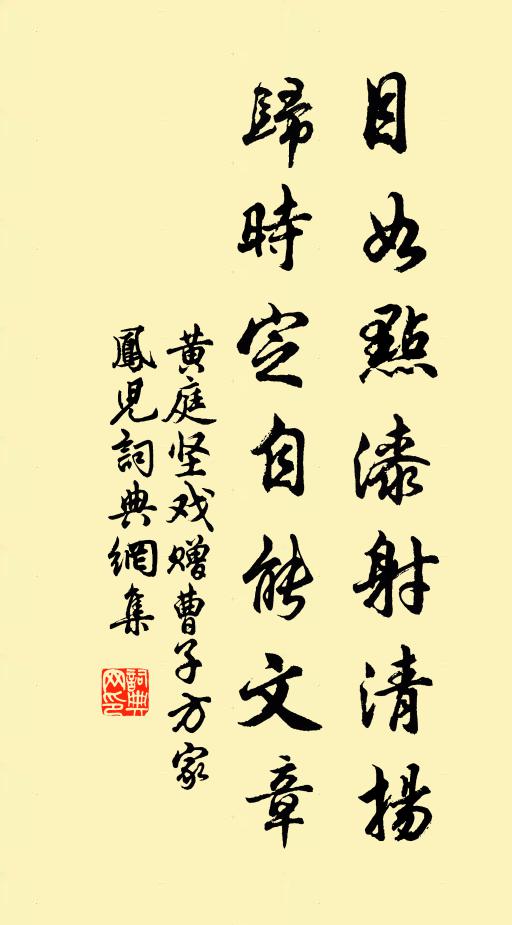 目如點漆射清揚
歸時定自能文章
黄庭坚戏赠曹子方家
鳳児詞典網集
詞典网印